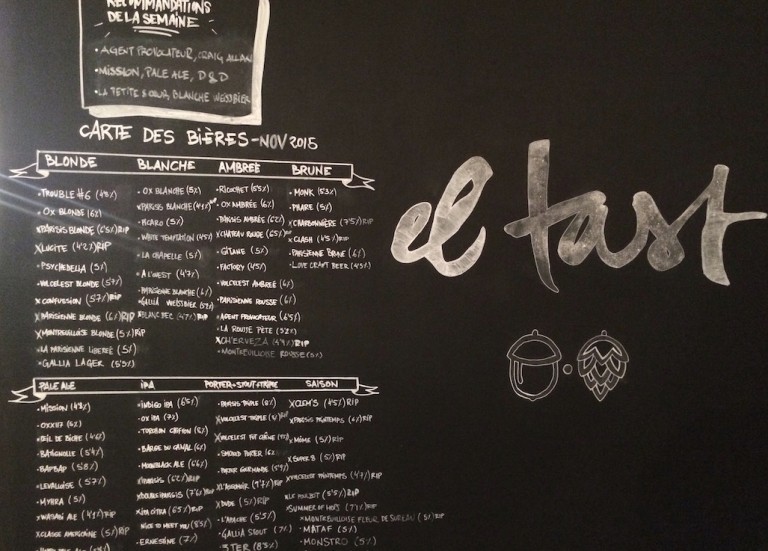 RECOMMANDATIONS
DE LA SEMAINE
• AGENT PROVOCATEUR, CRAIG ALLAN
• MISSION, PALE ALE, D&D
• LA PETITE SŒUR, BLANCHE WEISSBIER
CARTE DES BIÈRES - NOV 2015
BLONDE
• TROUBLE #6
• OX BLONDE (6%)
X PARISIS BLONDE (6'5%) RIP
X LICITE (4'2%) RIP
• PSYCHEDELIA (5%)
• VOLCELEST BLONDE (5'7%)
X CONFUSSION (5'7%) RIP
X PARISIENNE BLONDE (6%) RIP
X MONTREUILLOISE BLONDE (5%) RIP
• LA PARISIENNE LIBEREÉ (5%)
• GALLIA LAGER (5'5%)
BLANCHE
• OX BLANCHE (5%)
X PARISIS BLANCHE
• ICARO (5%)
• WHITE TEMPTATION (4'5%)
• LA CHAPELLE (5%)
• A L'OUEST (4'7%)
• PARISIENNE BLANCHE (6%)
• GALLIA WEISSBIER
X BLANC BEC (4'7%) RIP
AMBREÉ
• RICOCHET (5'5%)
• OX AMBRÉE (6%)
• PARISIS AMBRÉE (6'2%)
X CHATRON ROUGE (6'5%) RIP
• GITANE (5%)
• FACTORY (4'5%)
• VOLCELEST AMBREÉ (6%)
• PARISIENNE ROUSSE (6%)
• AGENT PROVOCATEUR (6'5%)
• LA ROUTE PÈTE (5'2%)
X CH'ERVEZA RIP
• MONTREUILLOISE ROUSSE (5%)
BRUNE
• MONK (5'3%)
• PHARE (5%)
X CHARBONNIÈRE (7'5%) RIP
X CLASH (4'5%) RIP
• PARISIENNE BRUNE (6%)
• LOVE CRAFT BEER (4'5%)
el tast
PALE ALE
• MISSION
• OXXIFF (6%)
• ŒIL DE BICHE
• BATIGNOLLE (5'4%)
• BAPBAP (5'8%)
• LEVALLOISE (5'7%)
• MYRHA (5%)
X WASABI ALE RIP
X CLASSE AMERICAINE (5%) RIP
IPA
• INDIGO IPA (6'5%)
• OX IPA (7%)
• TORCHON CHIFFON (6%)
• BARGE DU CANAL (6%)
• MOONBLACK ALE (6'6%)
X PARISIS (6'2%) RIP
X DOUBLE PARISIS (7'6%) RIP
X IPA CITRA (6'5%) RIP
• NICE TO MEET YOU (8'5%)
• ERNESTINE (7%)
PORTER • STOUT • TRIPLE
• PARISIS TRIPLE (8%)
X VOLCELEST TRIPLE RIP
X VOLCELEST FUT CHÊNE RIP
• SMOKED PORTER (6%)
• PORTER GOURMANDE (5'9%)
X L'ASSOMMOIR (7'7%) RIP
X DUDE (5%) RIP
• L'APACHE (5'5%)
• GALLIA STOUT (7%)
• 3 TER (8'5%)
SAISON
X CLEM'S (4'5%) RIP
X PARISIS PRINTEMPS (6%) RIP
• MÔME (5%) RIP
X SUPER 8 (5%) RIP
X VOLCELEST PRINTEMPS (4'7%) RIP
X LE POULBOT (5'5%) RIP
X SUMMER OF HOPS (7%) RIP
X MONTREUILLOISE FLEUR DE SUREAU (5%) RIP
• MATAF (5%)
• MONSTRO (5%)